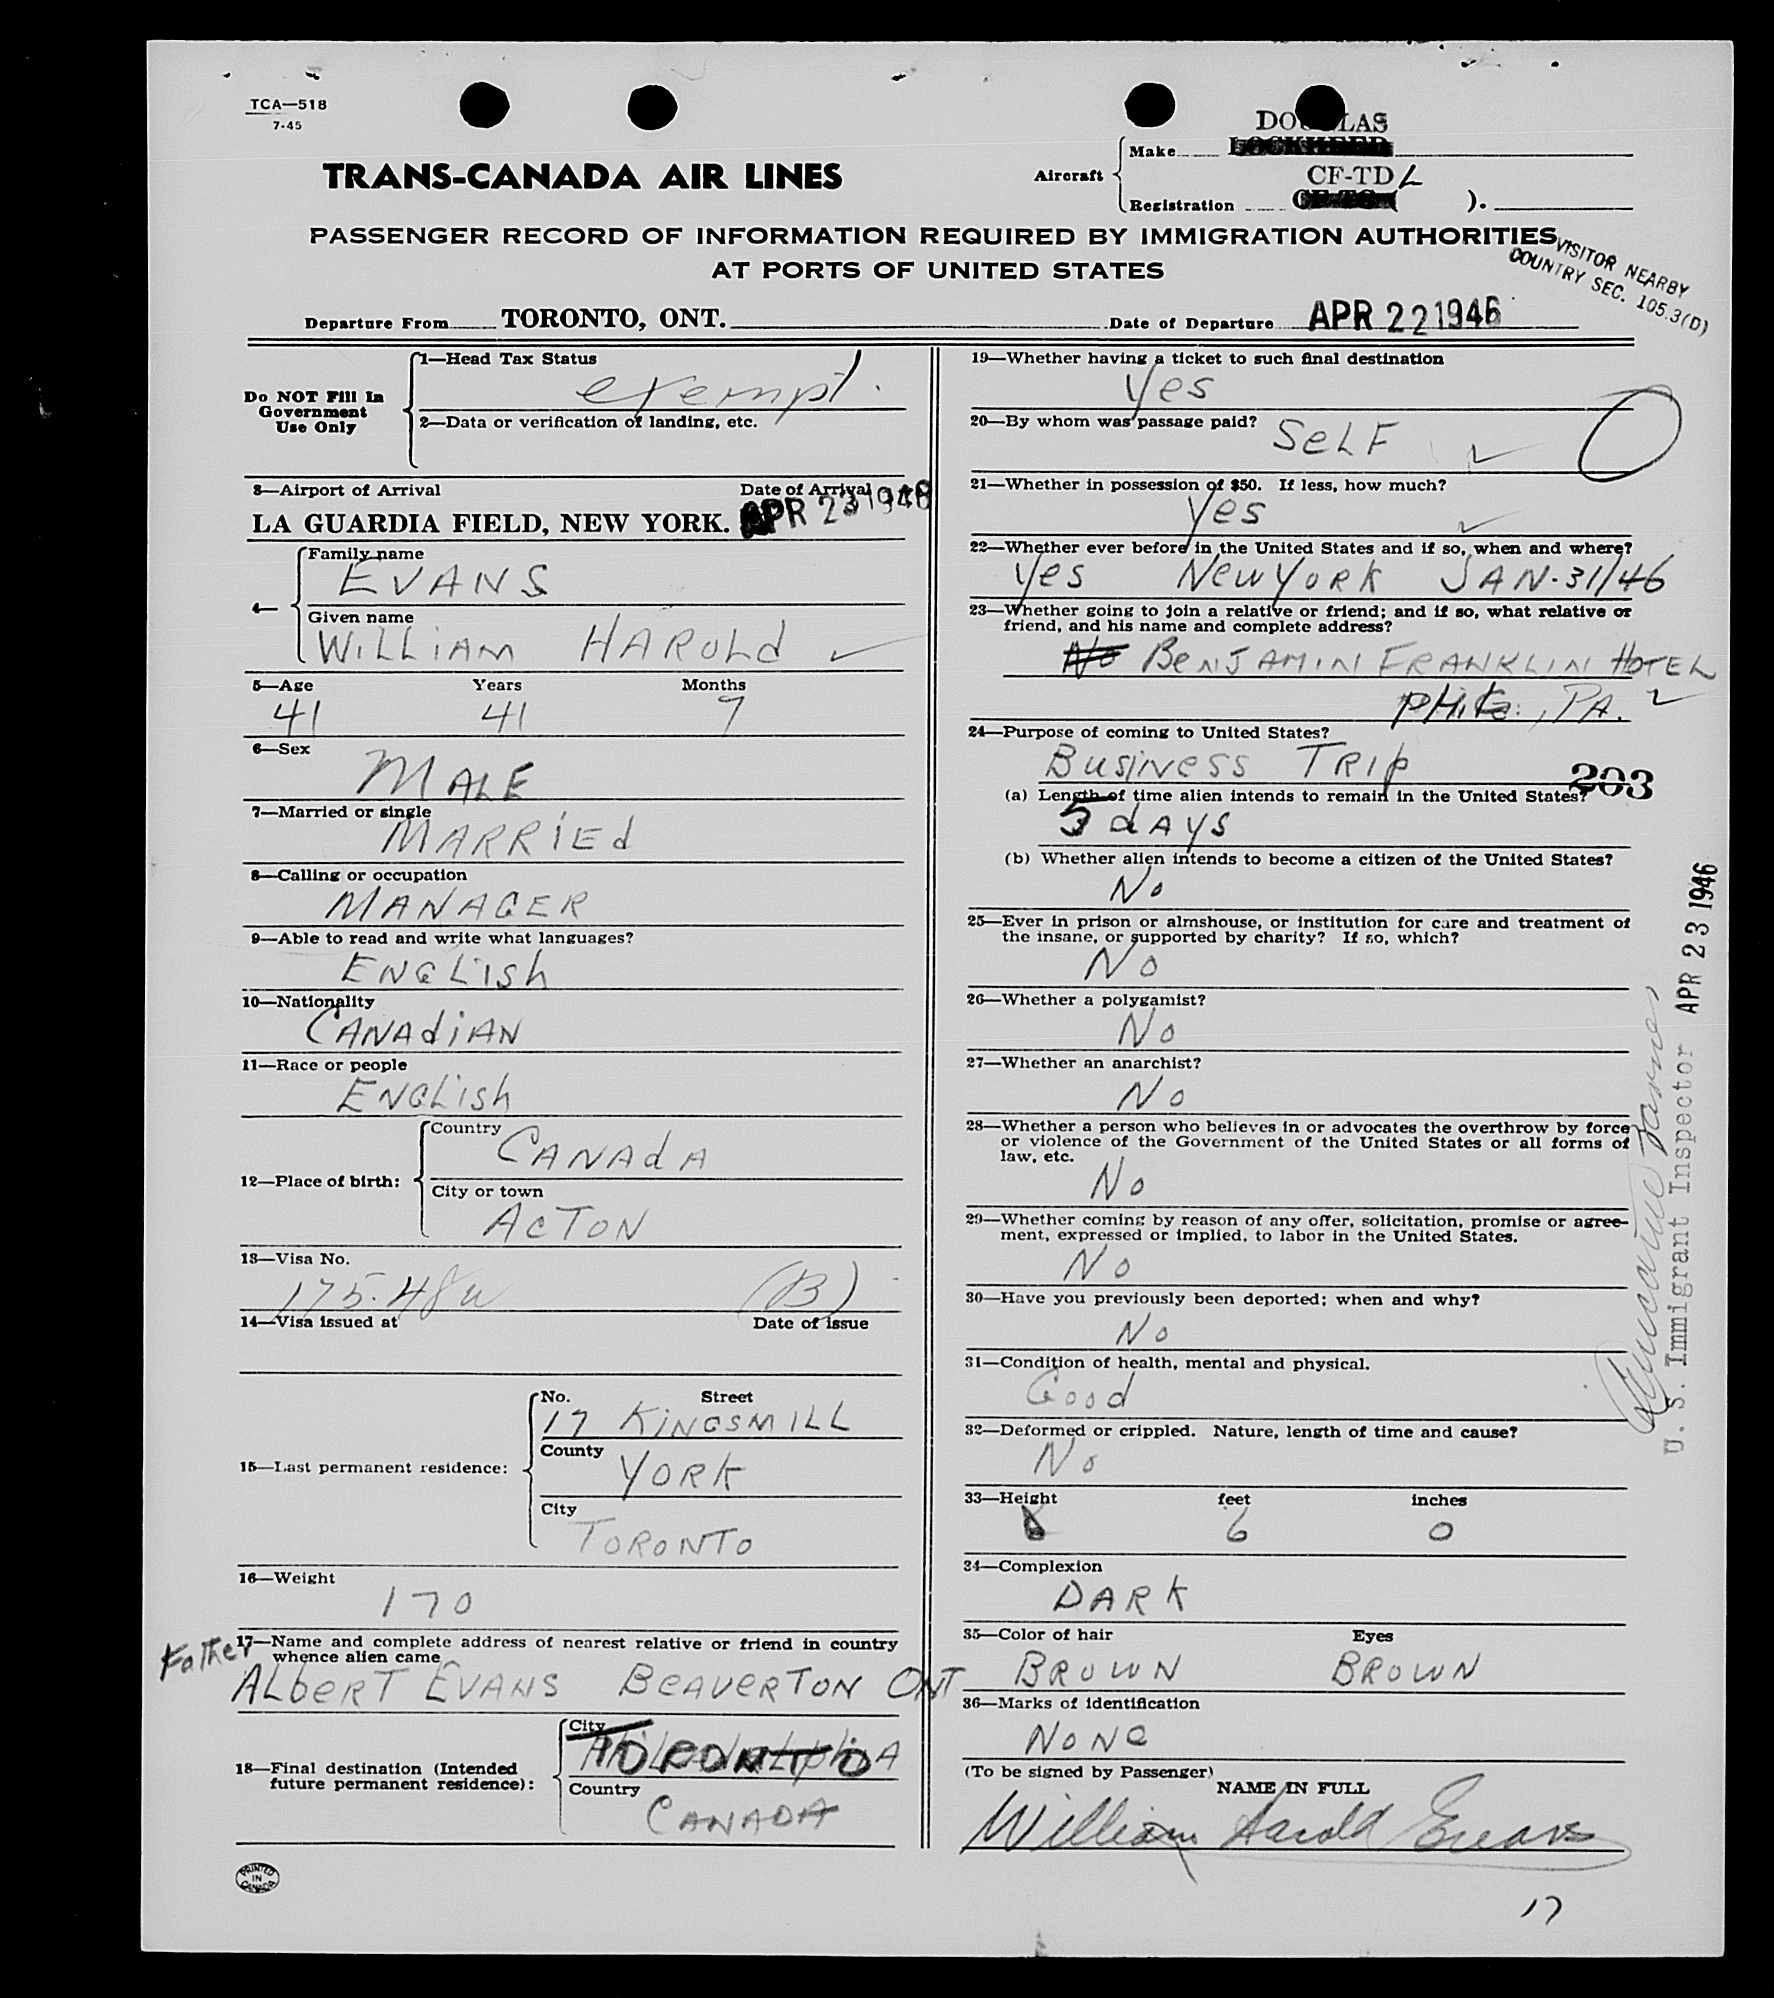 TCA—518
7-45
TRANS-CANADA AIR LINES
Aircraft
Make DOUGLAS LOCKHEED
Registration CF-TDL CF-TC- ( ).
PASSENGER RECORD OF INFORMATION REQUIRED BY IMMIGRATION AUTHORITIES
AT PORTS OF UNITED STATES
VISITOR NEARBY
COUNTRY SEC. 105.3(D)
Departure From TORONTO, ONT. Date of Departure APR 22 1946
Do NOT Fill In
Government
Use Only
1—Head Tax Status
exempt.
2—Data or verification of landing, etc.
3—Airport of Arrival Date of Arrival
LA GUARDIA FIELD, NEW YORK. APR 23 1946
4—
Family name
EVANS
Given name
WiLLiAM HAROLd
5—Age Years Months
41 41 7
6—Sex
MALE
7—Married or single
MARRiEd
8—Calling or occupation
MANAGER
9—Able to read and write what languages?
ENGLish
10—Nationality
CANAdiAN
11—Race or people
ENGLish
12—Place of birth:
Country
CANAdA
City or town
ACTON
13—Visa No.
175.48u (B)
14—Visa issued at Date of issue
15—Last permanent residence:
No. Street
17 KiNGSMILL
County
YORK
City
TORONTO
16—Weight
170
Father
17—Name and complete address of nearest relative or friend in country
whence alien came
ALbERT EVANS BEAVERTON ONT
18—Final destination (Intended
future permanent residence):
City
TORONTO
Country
CANADA
PRINTED
IN
CANADA
19—Whether having a ticket to such final destination
Yes
20—By whom was passage paid?
SeLF
21—Whether in possession of $50. If less, how much?
Yes
22—Whether ever before in the United States and if so, when and where?
Yes NewYORK JAN-31/46
23—Whether going to join a relative or friend; and if so, what relative or
friend, and his name and complete address?
No BeNJAMiN FRANKLIN HOTEL
PHila., PA.
24—Purpose of coming to United States?
BusiNess TRip
203
(a) Length of time alien intends to remain in the United States?
5 dAys
(b) Whether alien intends to become a citizen of the United States?
No
25—Ever in prison or almshouse, or institution for care and treatment of
the insane, or supported by charity? If so, which?
No
26—Whether a polygamist?
No
27—Whether an anarchist?
No
28—Whether a person who believes in or advocates the overthrow by force
or violence of the Government of the United States or all forms of
law, etc.
No
29—Whether coming by reason of any offer, solicitation, promise or agree-
ment, expressed or implied, to labor in the United States.
No
30—Have you previously been deported; when and why?
No
31—Condition of health, mental and physical.
Good
32—Deformed or crippled. Nature, length of time and cause?
No
33—Height feet inches
6 6 0
34—Complexion
DARK
35—Color of hair Eyes
BROWN BROWN
36—Marks of identification
NONe
(To be signed by Passenger)
NAME IN FULL
William Harold Evans
17
U. S. Immigrant Inspector APR 23 1946